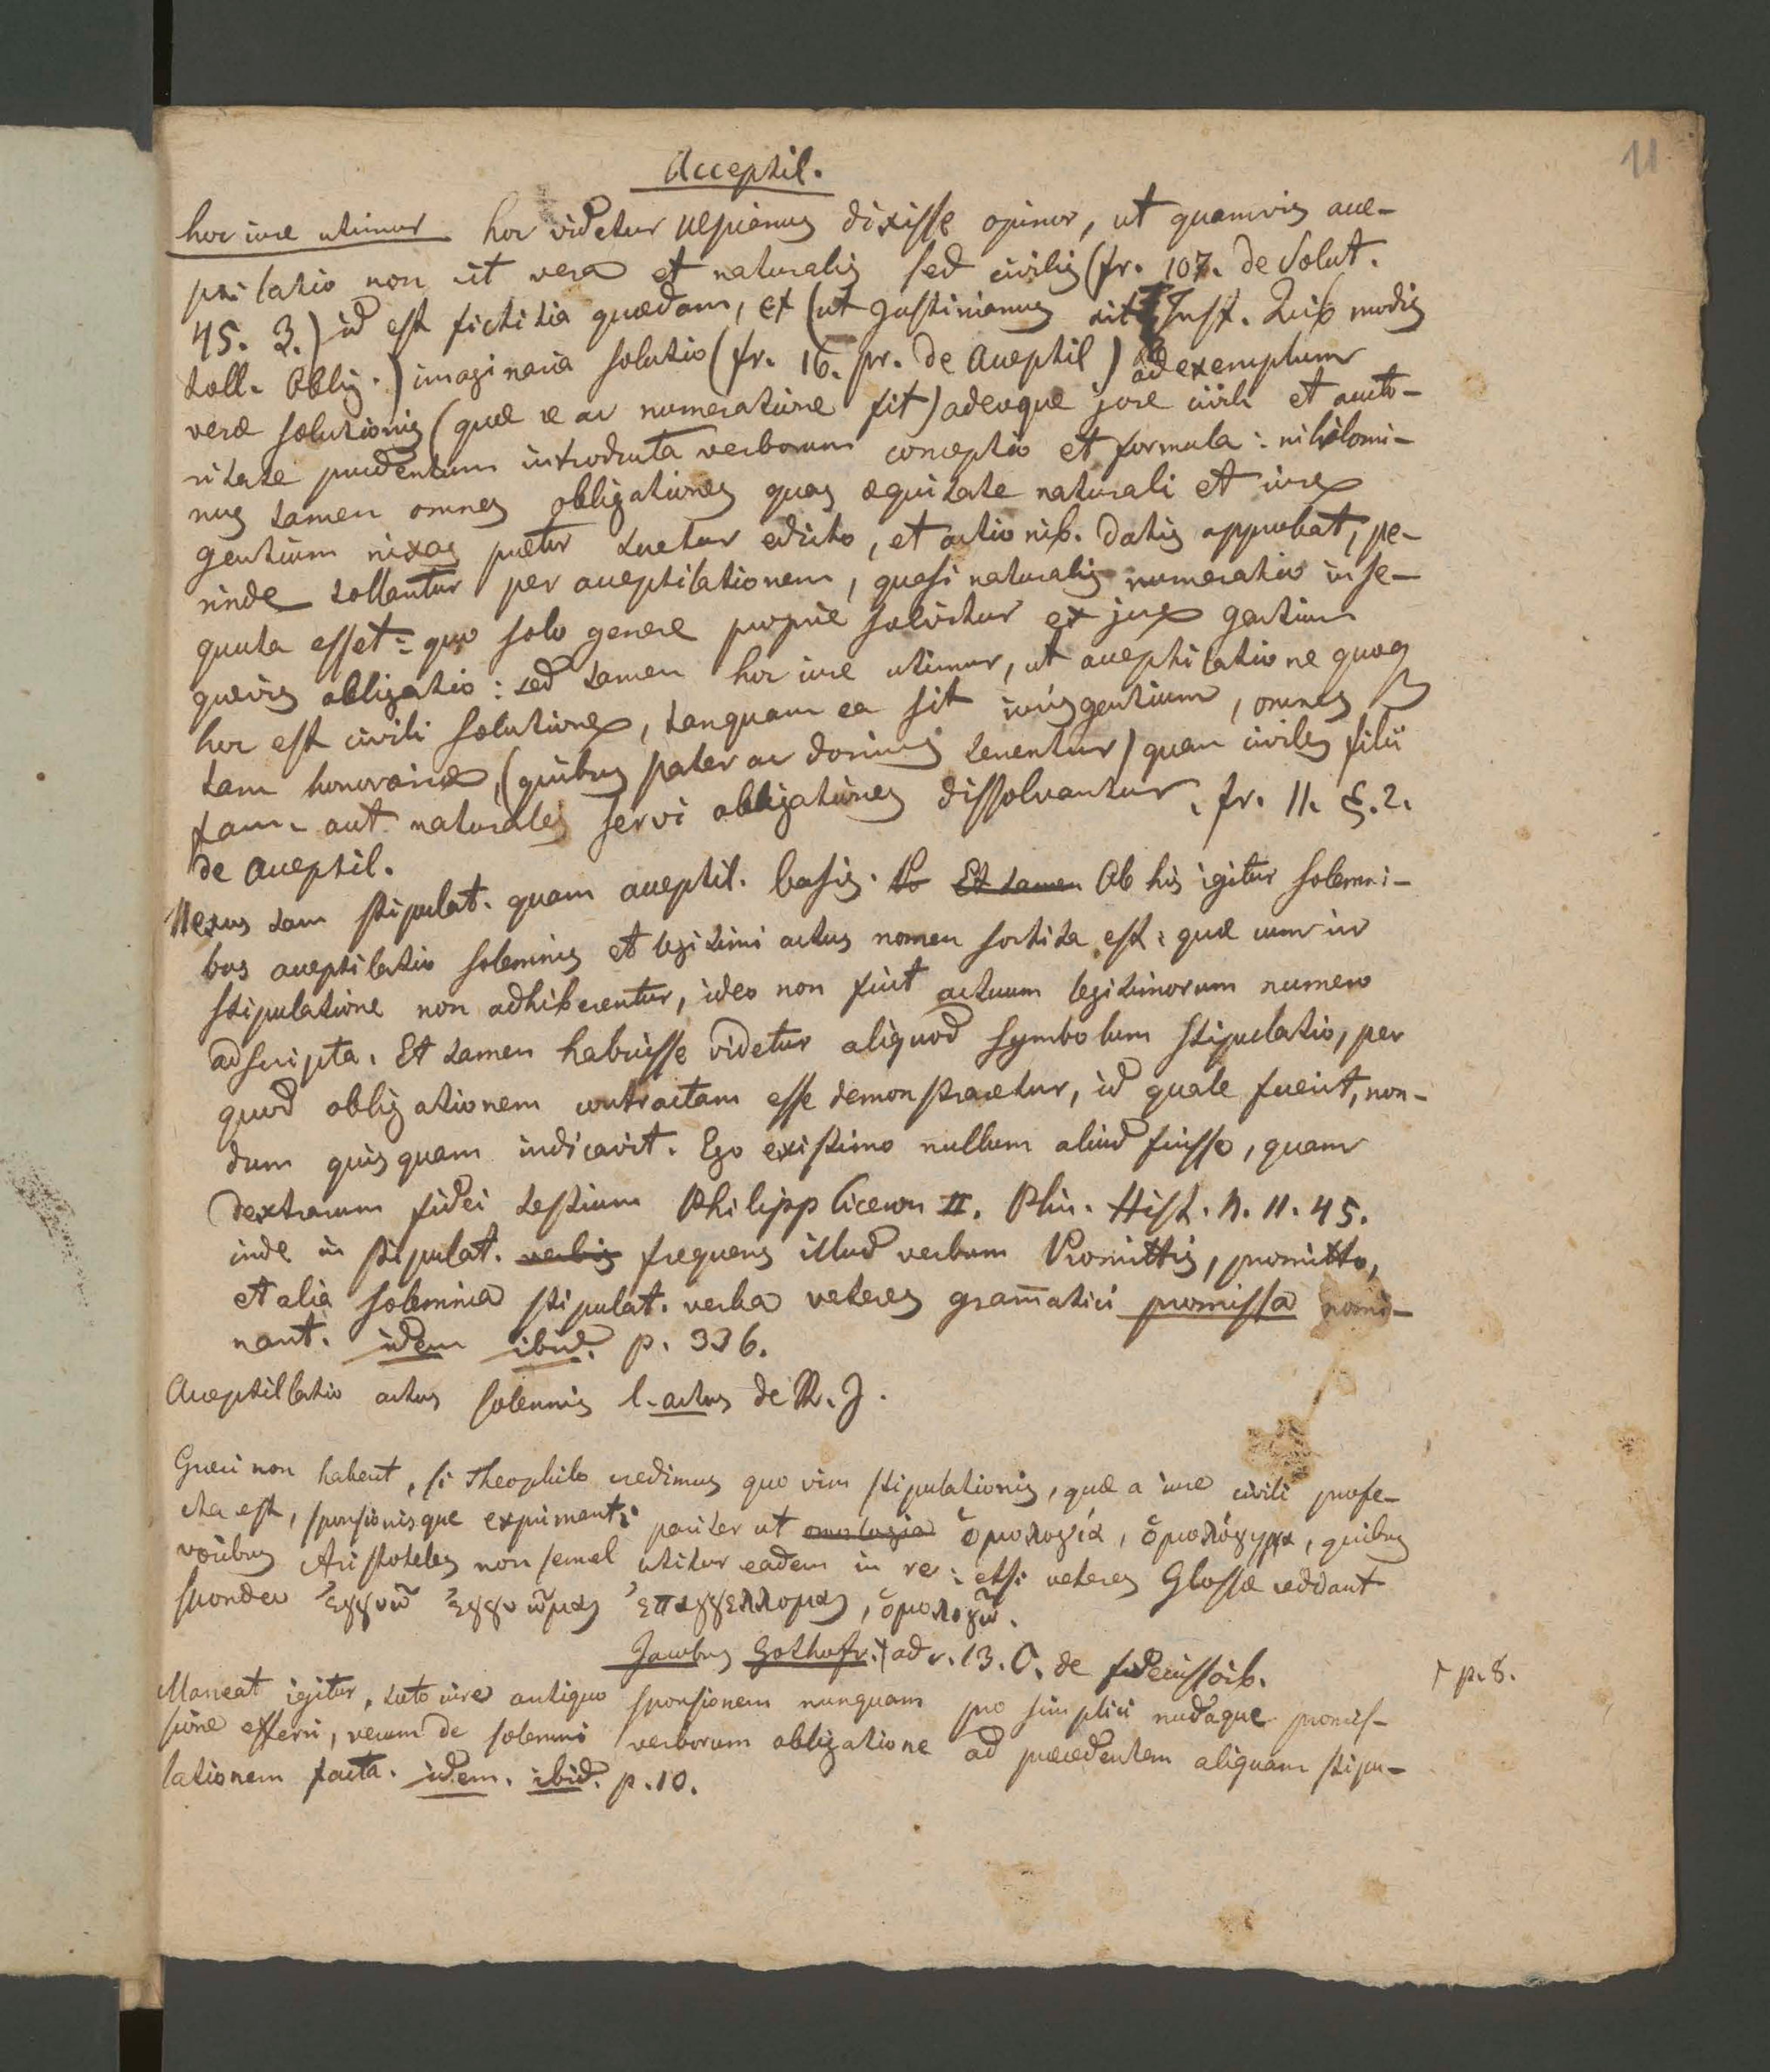 11
Acceptil.
hoc iure utimur hoc videtur Ulpianus dixisse opinor, ut quamvis acce-
ptilatio non sit vera et naturalis sed civilis (fr. 107. de Solut.
45. 3.) id est fictitia quædam, et (ut Justinianus ait Inst. Quib modis
toll. Oblig.) imaginaria solutio (fr. 16. pr. de Acceptil) ad exemplum
veræ solutionis (quæ re ac numeratione fit) adeoque jure civili et aucto-
ritate prudentum introducta verborum conceptio et formula: nihilomi-
nus tamen omnes obligationes quas æquitate naturali et iure
gentium nixas prætor tuetur edicto, et actionib. datis approbat, pe-
rinde tollantur per acceptilationem, quasi naturalis numeratio inse-
quuta esset: quo solo genere proprie solvitur ex jure gentium
quævis obligatio: sed tamen hoc iure utimur, ut acceptilatione quoq
hoc est civili solutione, tanquam ea sit iuris gentium, omnes
tam honorariæ, (quibus pater ac dominus tenentur) quam civiles filii
fam. aut naturales servi obligationes dissolvantur. fr. 11. §. 2.
de Acceptil.
Nexus tam stipulat. quam acceptil. basis. Et tamen Ab his igitur solemni-
bus acceptilatio solemnis et legitimi actus nomen sortita est: quæ cum in
stipulatione non adhiberentur, ideo non fuit actuum legitimorum numero
adscripta. Et tamen habuisse videtur aliquod symbolum stipulatio, per
quod obligationem contractam esse demonstraretur, id quale fuerit, non-
dum quisquam indicavit. Ego existimo nullum aliud fuisse, quam
dextrarum fidei testium Philipp Ciceron II. Plin. Hist. N. 11. 45.
inde in stipulat. verbis frequens illud verbum Promittis, promitto,
et alia solemnia stipulat. verba veteres gram̄atici promissa nomi-
nant. idem ibid. p. 336.
Acceptillatio actus solennis l. actus de R. J.
Græci non habent, si Theophilo credimus quo vim stipulationis, quæ a iure civili profe-
cta est, sponsionisque expriment: pariter ut omologia ὁμολογία, ὁμολόγημα, quibus
vocibus Aristoteles non semel utitur eadem in re: etsi veteres Glossæ reddant
spondeo ἐγγυῶ ἐγγυῶμαι ἐπαγγέλλομαι, ὁμολογῶ.
Jacobus Gothofr. † ad c. 13. C. de fideiussorib.
† p. 8.
Maneat igitur, toto iure antiquo sponsionem nunquam pro simplici nudaque promis-
sione efferri, verum de solemni verborum obligatione ad præcedentem aliquam stipu-
lationem facta. idem. ibid. p. 10.